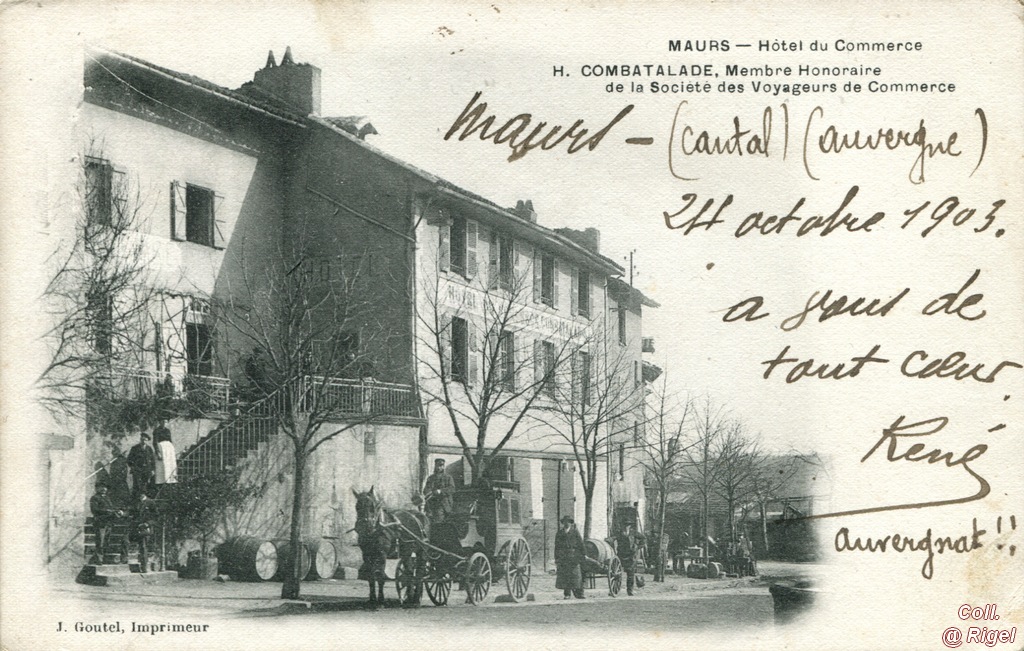 MAURS — Hôtel du Commerce
H. COMBATALADE, Membre Honoraire
de la Société des Voyageurs de Commerce
Maurs - (Cantal) (auvergne)
24 octobre 1903.
a vous de
tout cœur
René
auvergnat!!
HOTEL
COMBATALADE
J. Goutel, Imprimeur
Coll.
@ Rigel